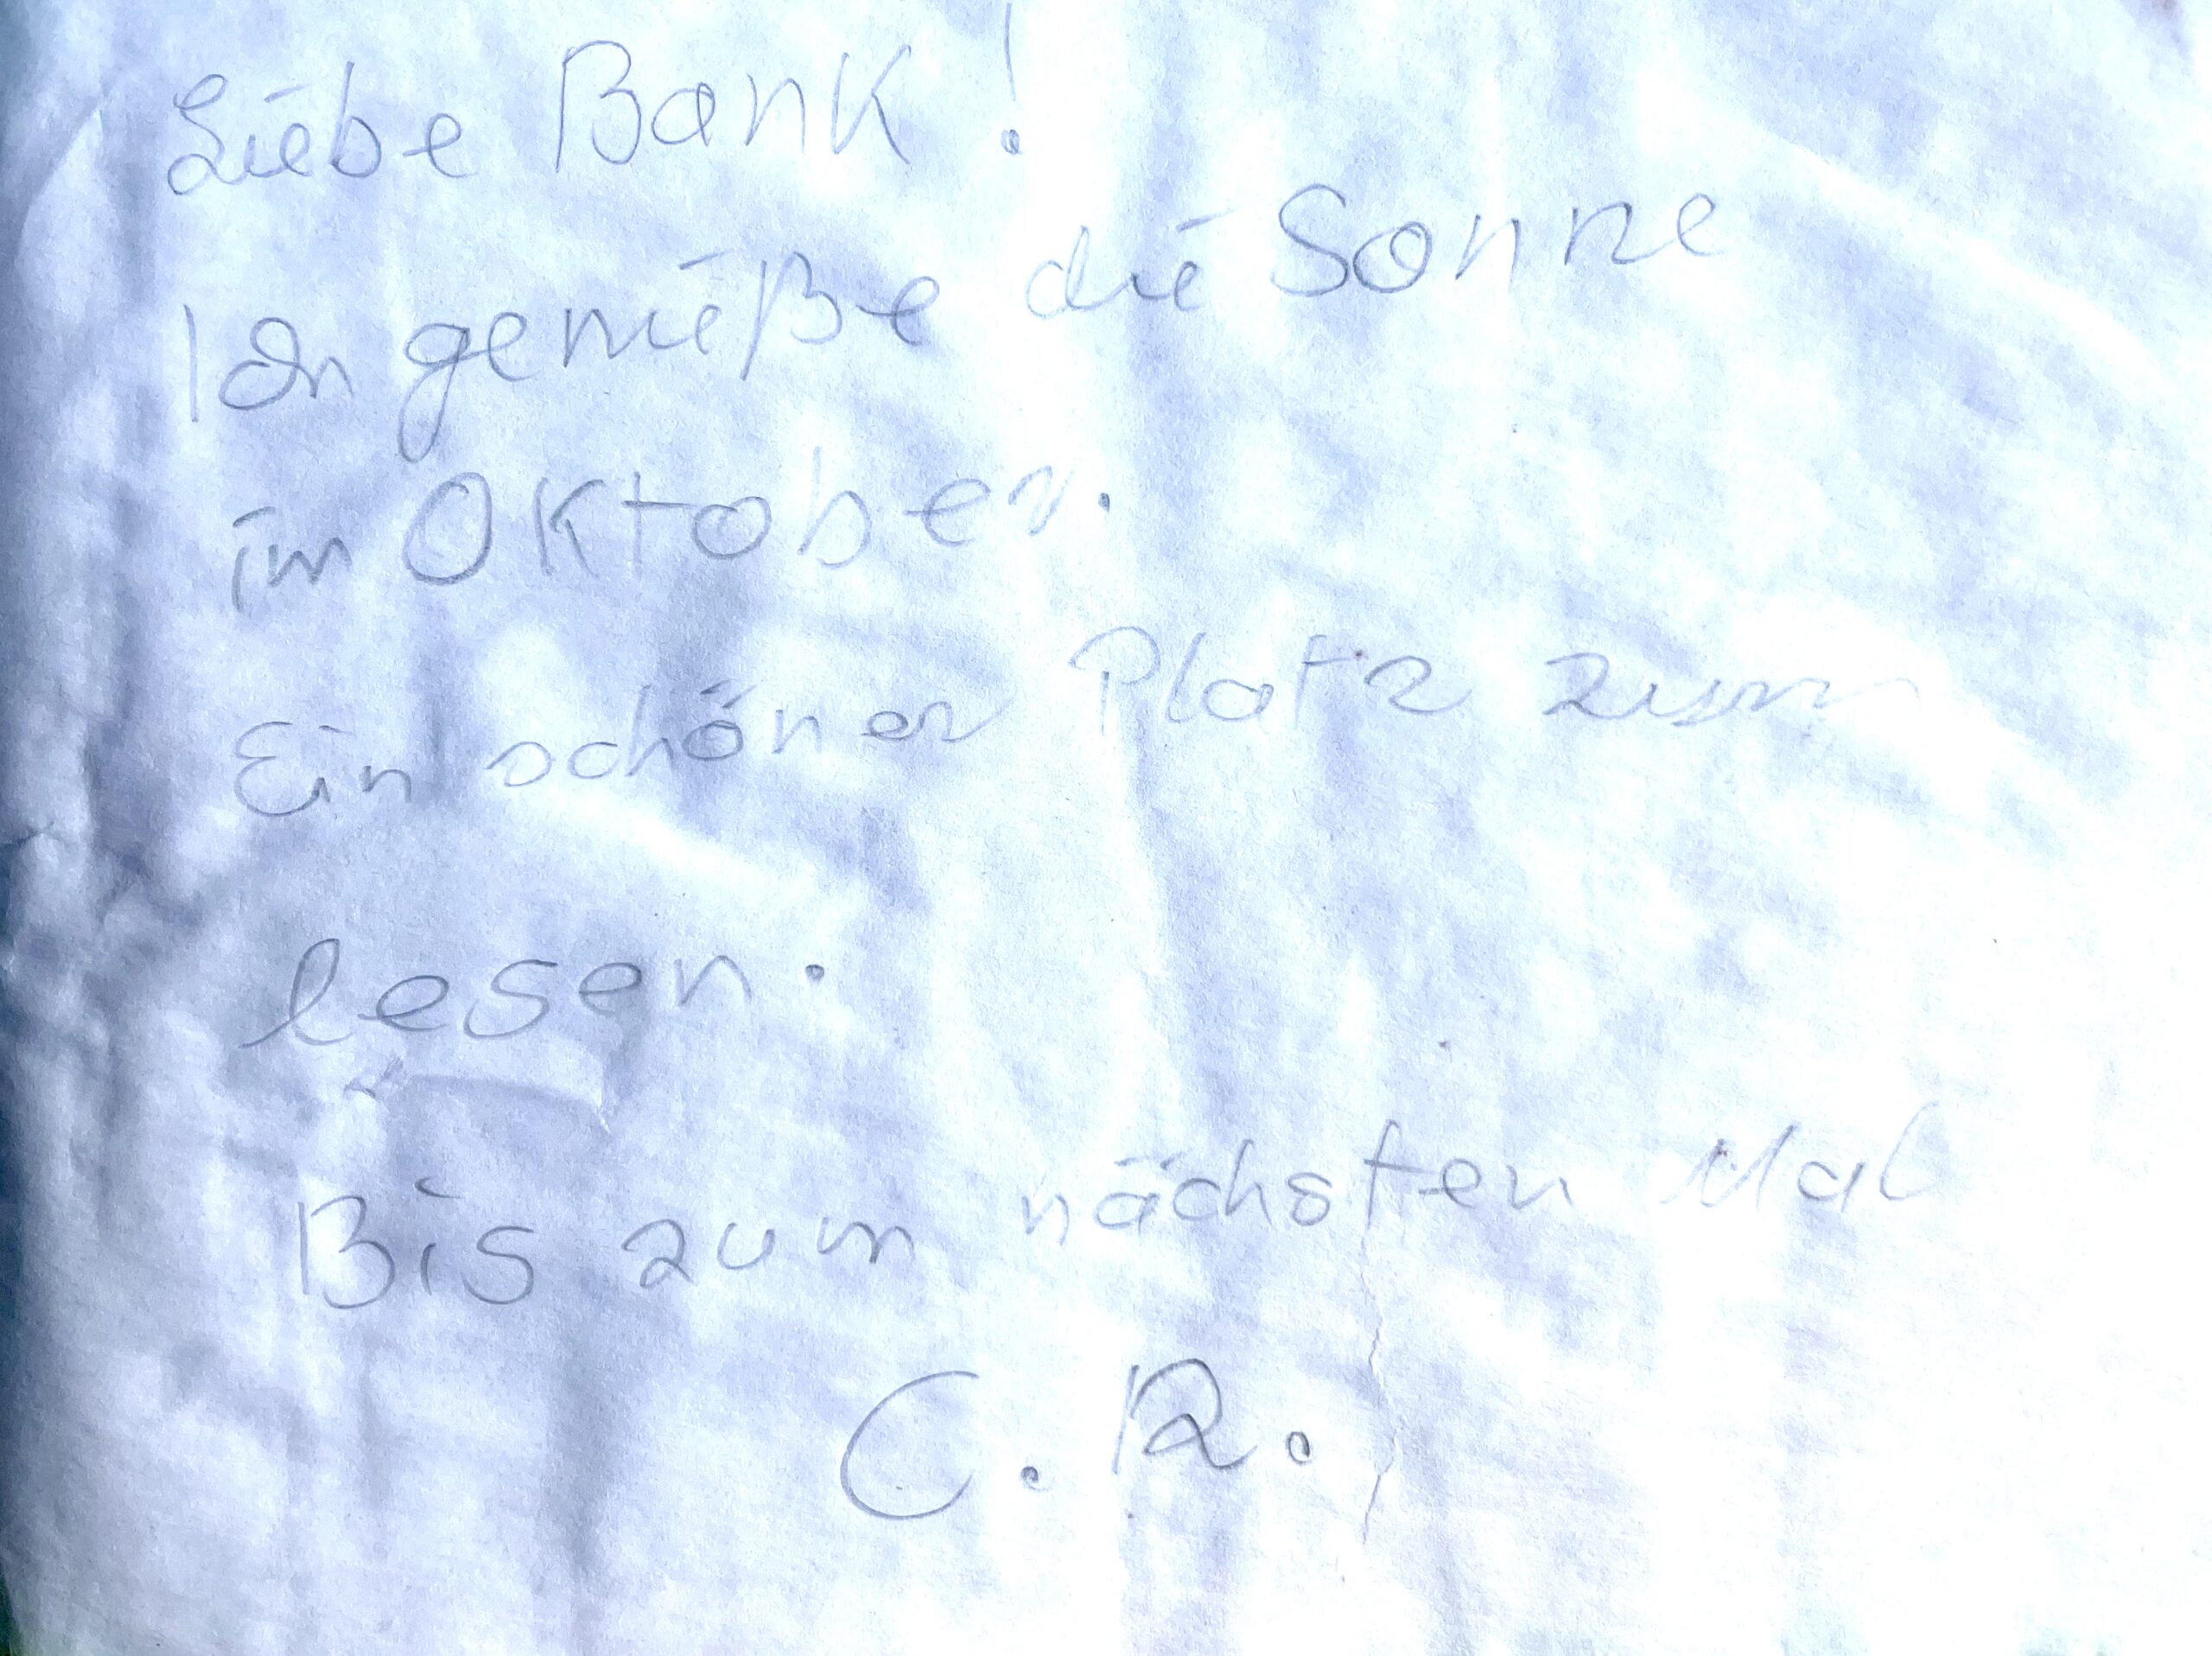 Liebe Bank!
Ich genieße die Sonne
im Oktober.
Ein schöner Platz zum
lesen.
Bis zum nächsten Mal
C. R.